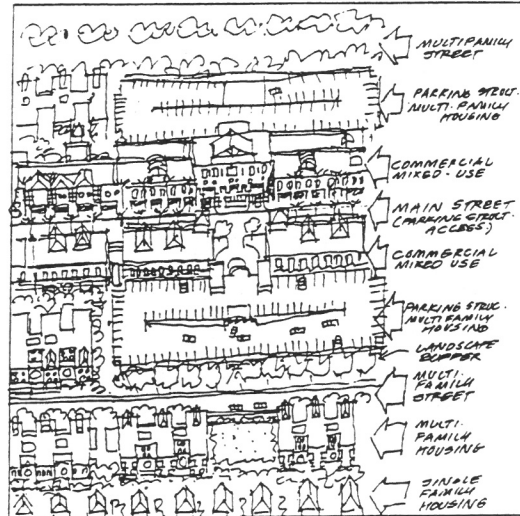 MULTIFAMILY
STREET
PARKING STRUCT.
MULTI FAMILY
HOUSING
COMMERCIAL
MIXED-USE
MAIN STREET
(PARKING STRUCT.
ACCESS)
COMMERCIAL
MIXED USE
PARKING STRUC.
MULTIFAMILY
HOUSING
LANDSCAPE
BUFFER
MULTI-
FAMILY
STREET
MULTI-
FAMILY
HOUSING
SINGLE
FAMILY
HOUSING